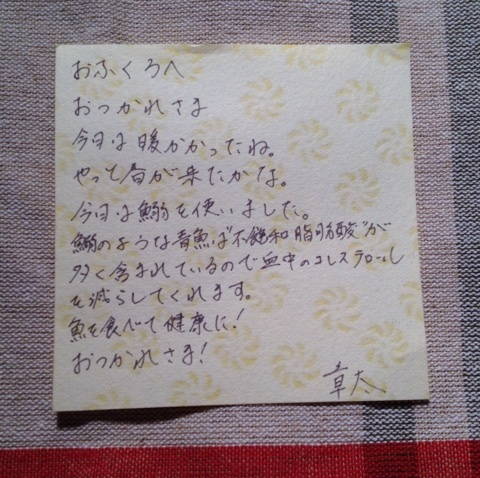 おふくろへ
おつかれさま
今日は暖かかったね。
やっと春が来たかな。
今日は鰯を使いました。
鰯のような青魚は"不飽和脂肪酸"が
多く含まれているので血中のコレステロール
を減らしてくれます。
魚を食べて健康に!
おつかれさま!
章太